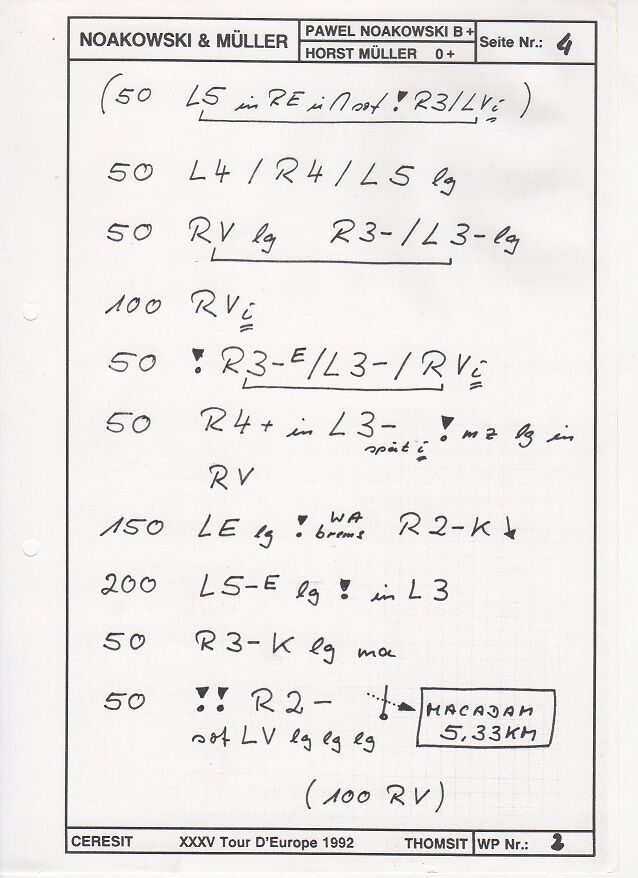 NOAKOWSKI & MÜLLER
PAWEL NOAKOWSKI B +
HORST MÜLLER 0 +
Seite Nr.: 4
(50 L5 in RE ü ∩ sof ! R3/LVi)
50 L4 / R4 / L5 lg
50 RV lg R3- / L3- lg
100 RVi
50 ! R3-E / L3- / RVi
50 R4+ in L3- ! mz lg in
spät i
RV
150 LE lg ! WA brems R2-K ↓
200 L5-E lg ! in L3
50 R3-K lg ma
50 !! R2-
MACADAM
5,33KM
sof LV lg lg lg
(100 RV)
CERESIT XXXV Tour D'Europe 1992 THOMSIT WP Nr.: 2